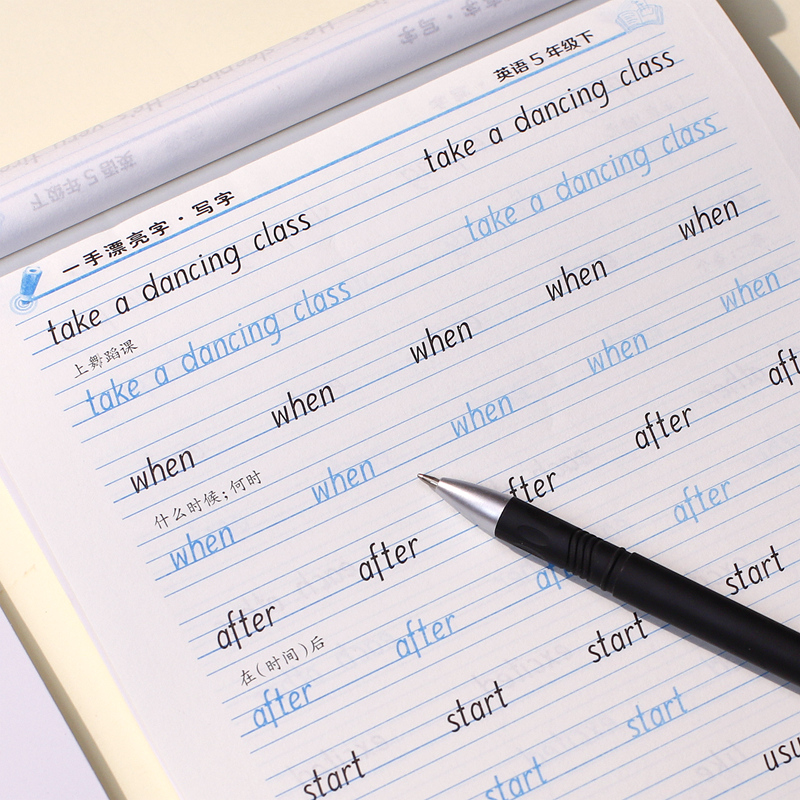 一手漂亮字·写字 英语5年级下
take a dancing class take a dancing class
上舞蹈课
take a dancing class take a dancing class
when when when when when
什么时候;何时
when when when when when
after after after after
在(时间)后
after after after
start start start start
start start